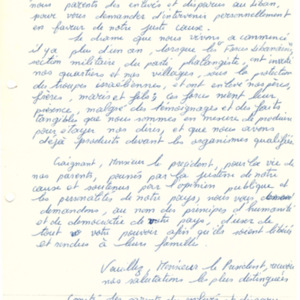 nous parents des enlevés et disparus au Liban,
pour vous demander d'intervenir personnellement
en faveur de notre juste cause.
Le drame que nous vivons a commencé
il y a plus d'un an, lorsque les Forces Libanaises
section militaire du parti phalangiste, ont investi
nos quartiers et nos villages, sous la protection
des troupes israéliennes, et ont enlevé nos pères,
frères, maris et fils. Ces forces nient leur
présence, malgré des témoignages et des faits
tangibles que nous sommes en mesure de produire
pour étayer nos dires, et que nous avons
déjà produits devant les organismes qualifiés
Craignant, Monsieur le président, pour la vie de
nos parents, poussés par la justice de notre
cause et soutenus par l'opinion publique et
les personnalités de notre pays, nous vous
demandons, au nom des principes d'humanité
et de démocratie de votre pays, d'user de
tout votre pouvoir afin qu'ils soient libérés
et rendus à leurs familles.
Veuillez Monsieur le Président, recevoir
nos salutations les plus distinguées
Comité des parents